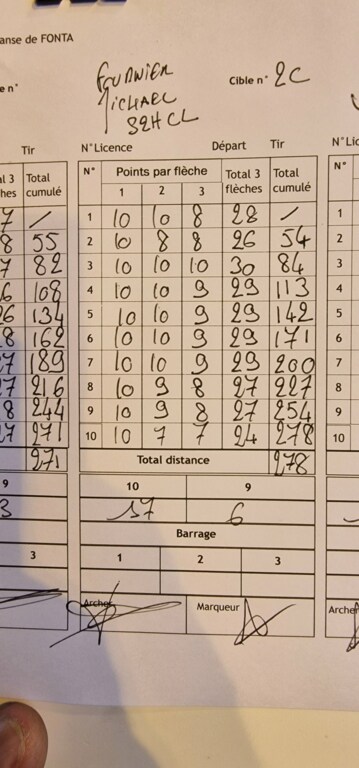 anse de FONTA
FOURNIER
MICHAEL
32HCL
Cible n° 2C
e n°
Tir
N°Licence Départ Tir
N°Lic
al 3 Total
ches cumulé
N° Points par flèche Total 3 Total
1 2 3 flèches cumulé
N°
7 /
1 10 10 8 28 /
1
8 55
2 10 8 8 26 54
2
7 82
3 10 10 10 30 84
3
6 108
4 10 10 9 29 113
4
26 134
5 10 10 9 29 142
5
8 162
6 10 10 9 29 171
6
27 189
7 10 10 9 29 200
7
27 216
8 10 9 8 27 227
8
8 244
9 10 9 8 27 254
9
27 271
10 10 7 7 24 278
10
271
Total distance 278
9
10 9
3
17 6
Barrage
3
1 2 3
Archer Marqueur
Arche